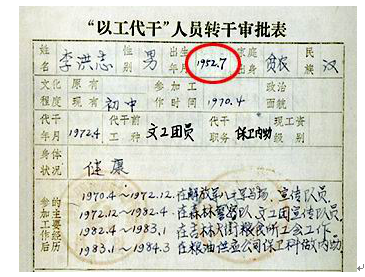 “以工代干”人员转干审批表
姓名 李洪志 性别 男 出生年月 1952.7 家庭出身 贫农 民族 汉
文化程度 原有 初中 参加工作时间 1970.4 政治面貌
代干年月 1972.4 代干前工种 文工团员 代干职务 保卫内勤 现工资级别
身体状况 健康
参加工作后的主要经历
1970.4~1972.12. 在解放军八一军马场、宣传队员.
1972.12~1982.4 在森林警察队、文工团宣传队员.
1982.4~1983.1 在吉林大街粮食所工会工作.
1983.1~1984.3 在粮油供应公司保卫科做内勤